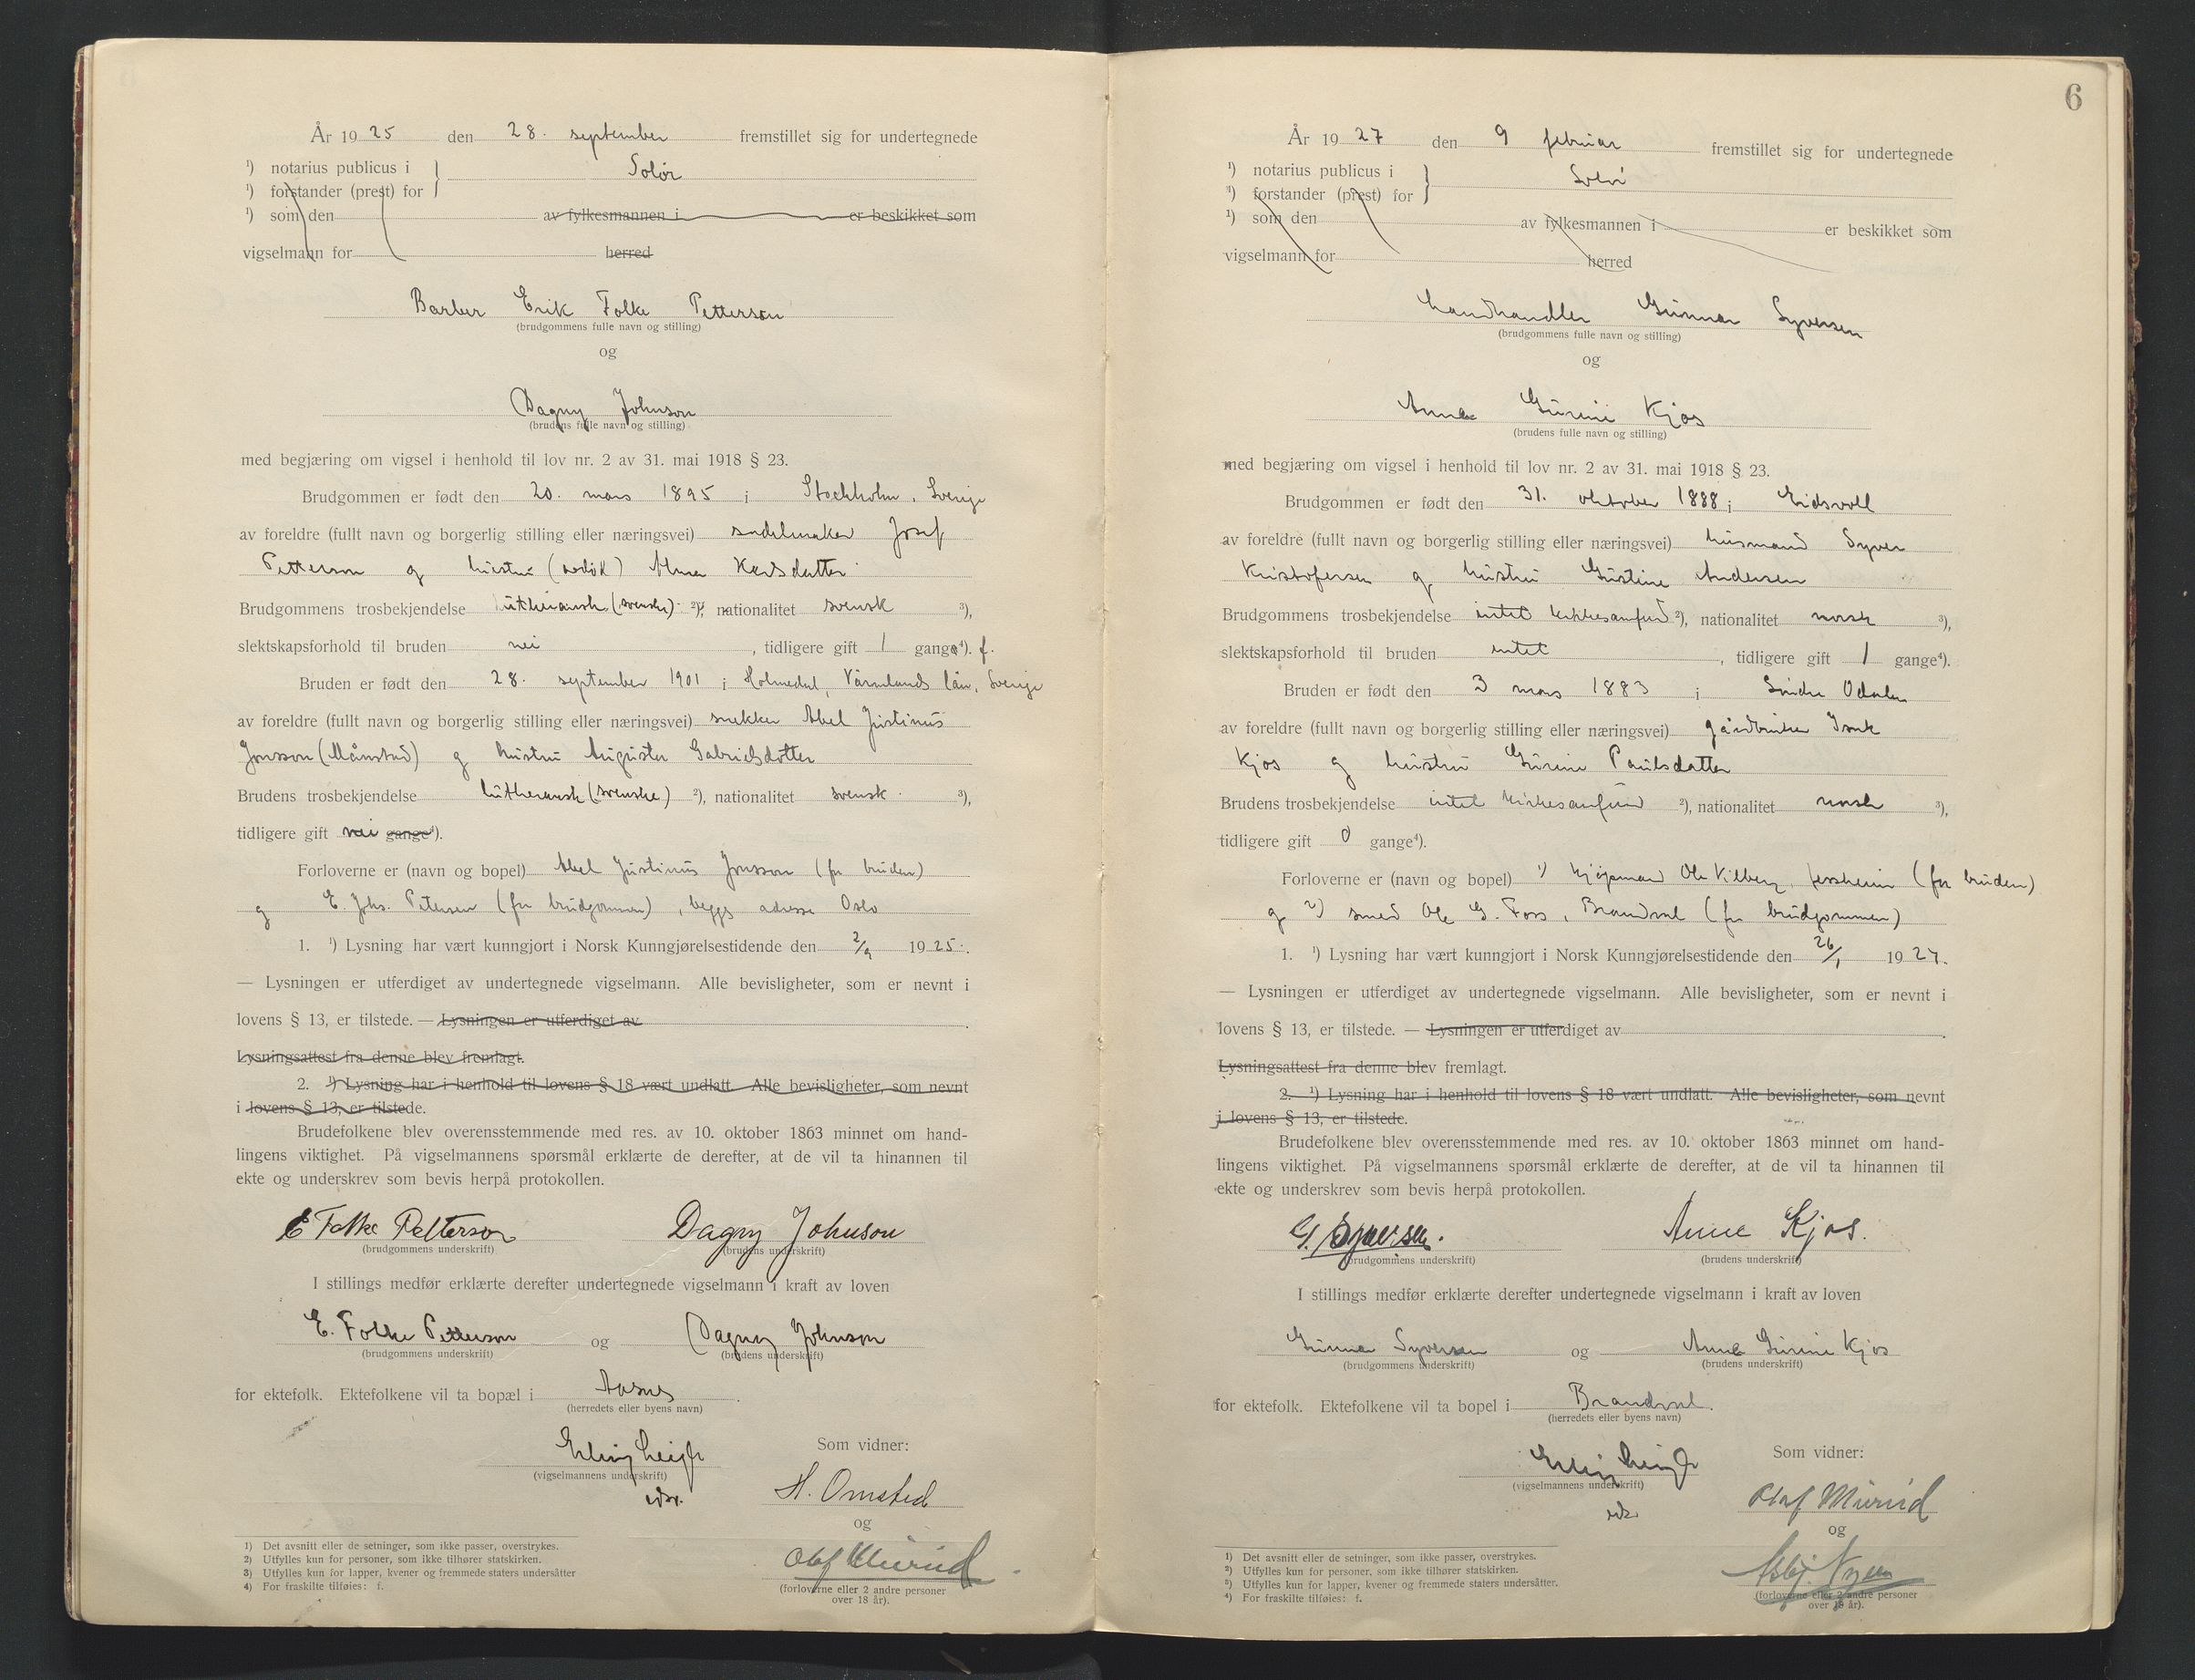 År 1925 den 28. september fremstillet sig for undertegnede
¹) notarius publicus i
Solør
¹) forstander (prest) for
¹) som den av fylkesmannen i er beskikket som
vigselmann for herred
Barber Erik Folke Petterson
(brudgommens fulle navn og stilling)
og
Dagny Johnson
(brudens fulle navn og stilling)
med begjæring om vigsel i henhold til lov nr. 2 av 31. mai 1918 § 23.
Brudgommen er født den 20. mars 1895 i Stockholm, Sverige
av foreldre (fullt navn og borgerlig stilling eller næringsvei) sadelmaker Josef
Petterson og hustru Alma Karlsdatter
Brudgommens trosbekjendelse luthersk (svensk) ²), nationalitet svensk ³),
slektskapsforhold til bruden nei, tidligere gift 1 gange⁴). f.
Bruden er født den 28. september 1901 i Holmedal, Värmlands län, Sverige
av foreldre (fullt navn og borgerlig stilling eller næringsvei) snekker Abel Justinus
Jonsson (Månstad) og hustru Augusta Gabrielsdotter
Brudens trosbekjendelse luthersk (svenske) ²), nationalitet svensk ³),
tidligere gift nei gange⁴).
Forloverne er (navn og bopel) Abel Justinus Jonsson (for bruden)
og E. Johs. Petersen (for brudgommen), begges adresse Oslo
1. ¹) Lysning har vært kunngjort i Norsk Kunngjørelsestidende den 2/9 1925.
— Lysningen er utferdiget av undertegnede vigselmann. Alle bevisligheter, som er nevnt i
lovens § 13, er tilstede. — Lysningen er utferdiget av
Lysningsattest fra denne blev fremlagt.
2. ¹) Lysning har i henhold til lovens § 18 vært undlatt. Alle bevisligheter, som nevnt
i lovens § 13, er tilstede.
Brudefolkene blev overensstemmende med res. av 10. oktober 1863 minnet om hand-
lingens viktighet. På vigselmannens spørsmål erklærte de derefter, at de vil ta hinannen til
ekte og underskrev som bevis herpå protokollen.
E Folke Petterson Dagny Johnson
(brudgommens underskrift) (brudens underskrift)
I stillings medfør erklærte derefter undertegnede vigselmann i kraft av loven
E. Folke Petterson og Dagny Johnson
(brudgommens underskrift) (brudens underskrift)
for ektefolk. Ektefolkene vil ta bopæl i Aasnes.
(herredets eller byens navn)
Som vidner:
(vigselmannens underskrift)
H. Omsted
og
Olaf Murud
(forloverne eller 2 andre personer
over 18 år).
1) Det avsnitt eller de setninger, som ikke passer, overstrykes.
2) Utfylles kun for personer, som ikke tilhører statskirken.
3) Utfylles kun for lapper, kvener og fremmede staters undersåtter
4) For fraskilte tilføies: f.
6
År 1927 den 9 februar fremstillet sig for undertegnede
¹) notarius publicus i
Solør
¹) forstander (prest) for
¹) som den av fylkesmannen i er beskikket som
vigselmann for herred
Landhandler Gunnar Syversen
(brudgommens fulle navn og stilling)
og
Anna Gurine Kjos
(brudens fulle navn og stilling)
med begjæring om vigsel i henhold til lov nr. 2 av 31. mai 1918 § 23.
Brudgommen er født den 31. oktober 1888 i Eidsvoll
av foreldre (fullt navn og borgerlig stilling eller næringsvei) husmand Syver
Kristofersen og hustru Gustine Andersen
Brudgommens trosbekjendelse intet kirkesamfund ²), nationalitet norsk ³),
slektskapsforhold til bruden intet, tidligere gift 1 gange⁴).
Bruden er født den 3 mars 1883 i Søndre Odalen
av foreldre (fullt navn og borgerlig stilling eller næringsvei) gårdbruker Isak
Kjos og hustru Gurine Paulsdatter
Brudens trosbekjendelse intet kirkesamfund ²), nationalitet norsk ³),
tidligere gift 0 gange⁴).
Forloverne er (navn og bopel) 1) kjøpmand Ole Vilberg, Jessheim (for bruden)
og 2) smed Ole G. Foss, Brandval (for brudgommen)
1. ¹) Lysning har vært kunngjort i Norsk Kunngjørelsestidende den 26/1 1927.
— Lysningen er utferdiget av undertegnede vigselmann. Alle bevisligheter, som er nevnt i
lovens § 13, er tilstede. — Lysningen er utferdiget av
Lysningsattest fra denne blev fremlagt.
2. ¹) Lysning har i henhold til lovens § 18 vært undlatt. Alle bevisligheter, som nevnt
i lovens § 13, er tilstede.
Brudefolkene blev overensstemmende med res. av 10. oktober 1863 minnet om hand-
lingens viktighet. På vigselmannens spørsmål erklærte de derefter, at de vil ta hinannen til
ekte og underskrev som bevis herpå protokollen.
G. Syversen. Anne Kjos.
(brudgommens underskrift) (brudens underskrift)
I stillings medfør erklærte derefter undertegnede vigselmann i kraft av loven
Gunnar Syversen og Anna Gurine Kjos
(brudgommens underskrift) (brudens underskrift)
for ektefolk. Ektefolkene vil ta bopel i Brandval.
(herredets eller byens navn)
Som vidner:
(vigselmannens underskrift)
Olaf Murud
og
(forloverne eller 2 andre personer
over 18 år).
1) Det avsnitt eller de setninger, som ikke passer, overstrykes.
2) Utfylles kun for personer, som ikke tilhører statskirken.
3) Utfylles kun for lapper, kvener og fremmede staters undersåtter.
4) For fraskilte tilføies: f.